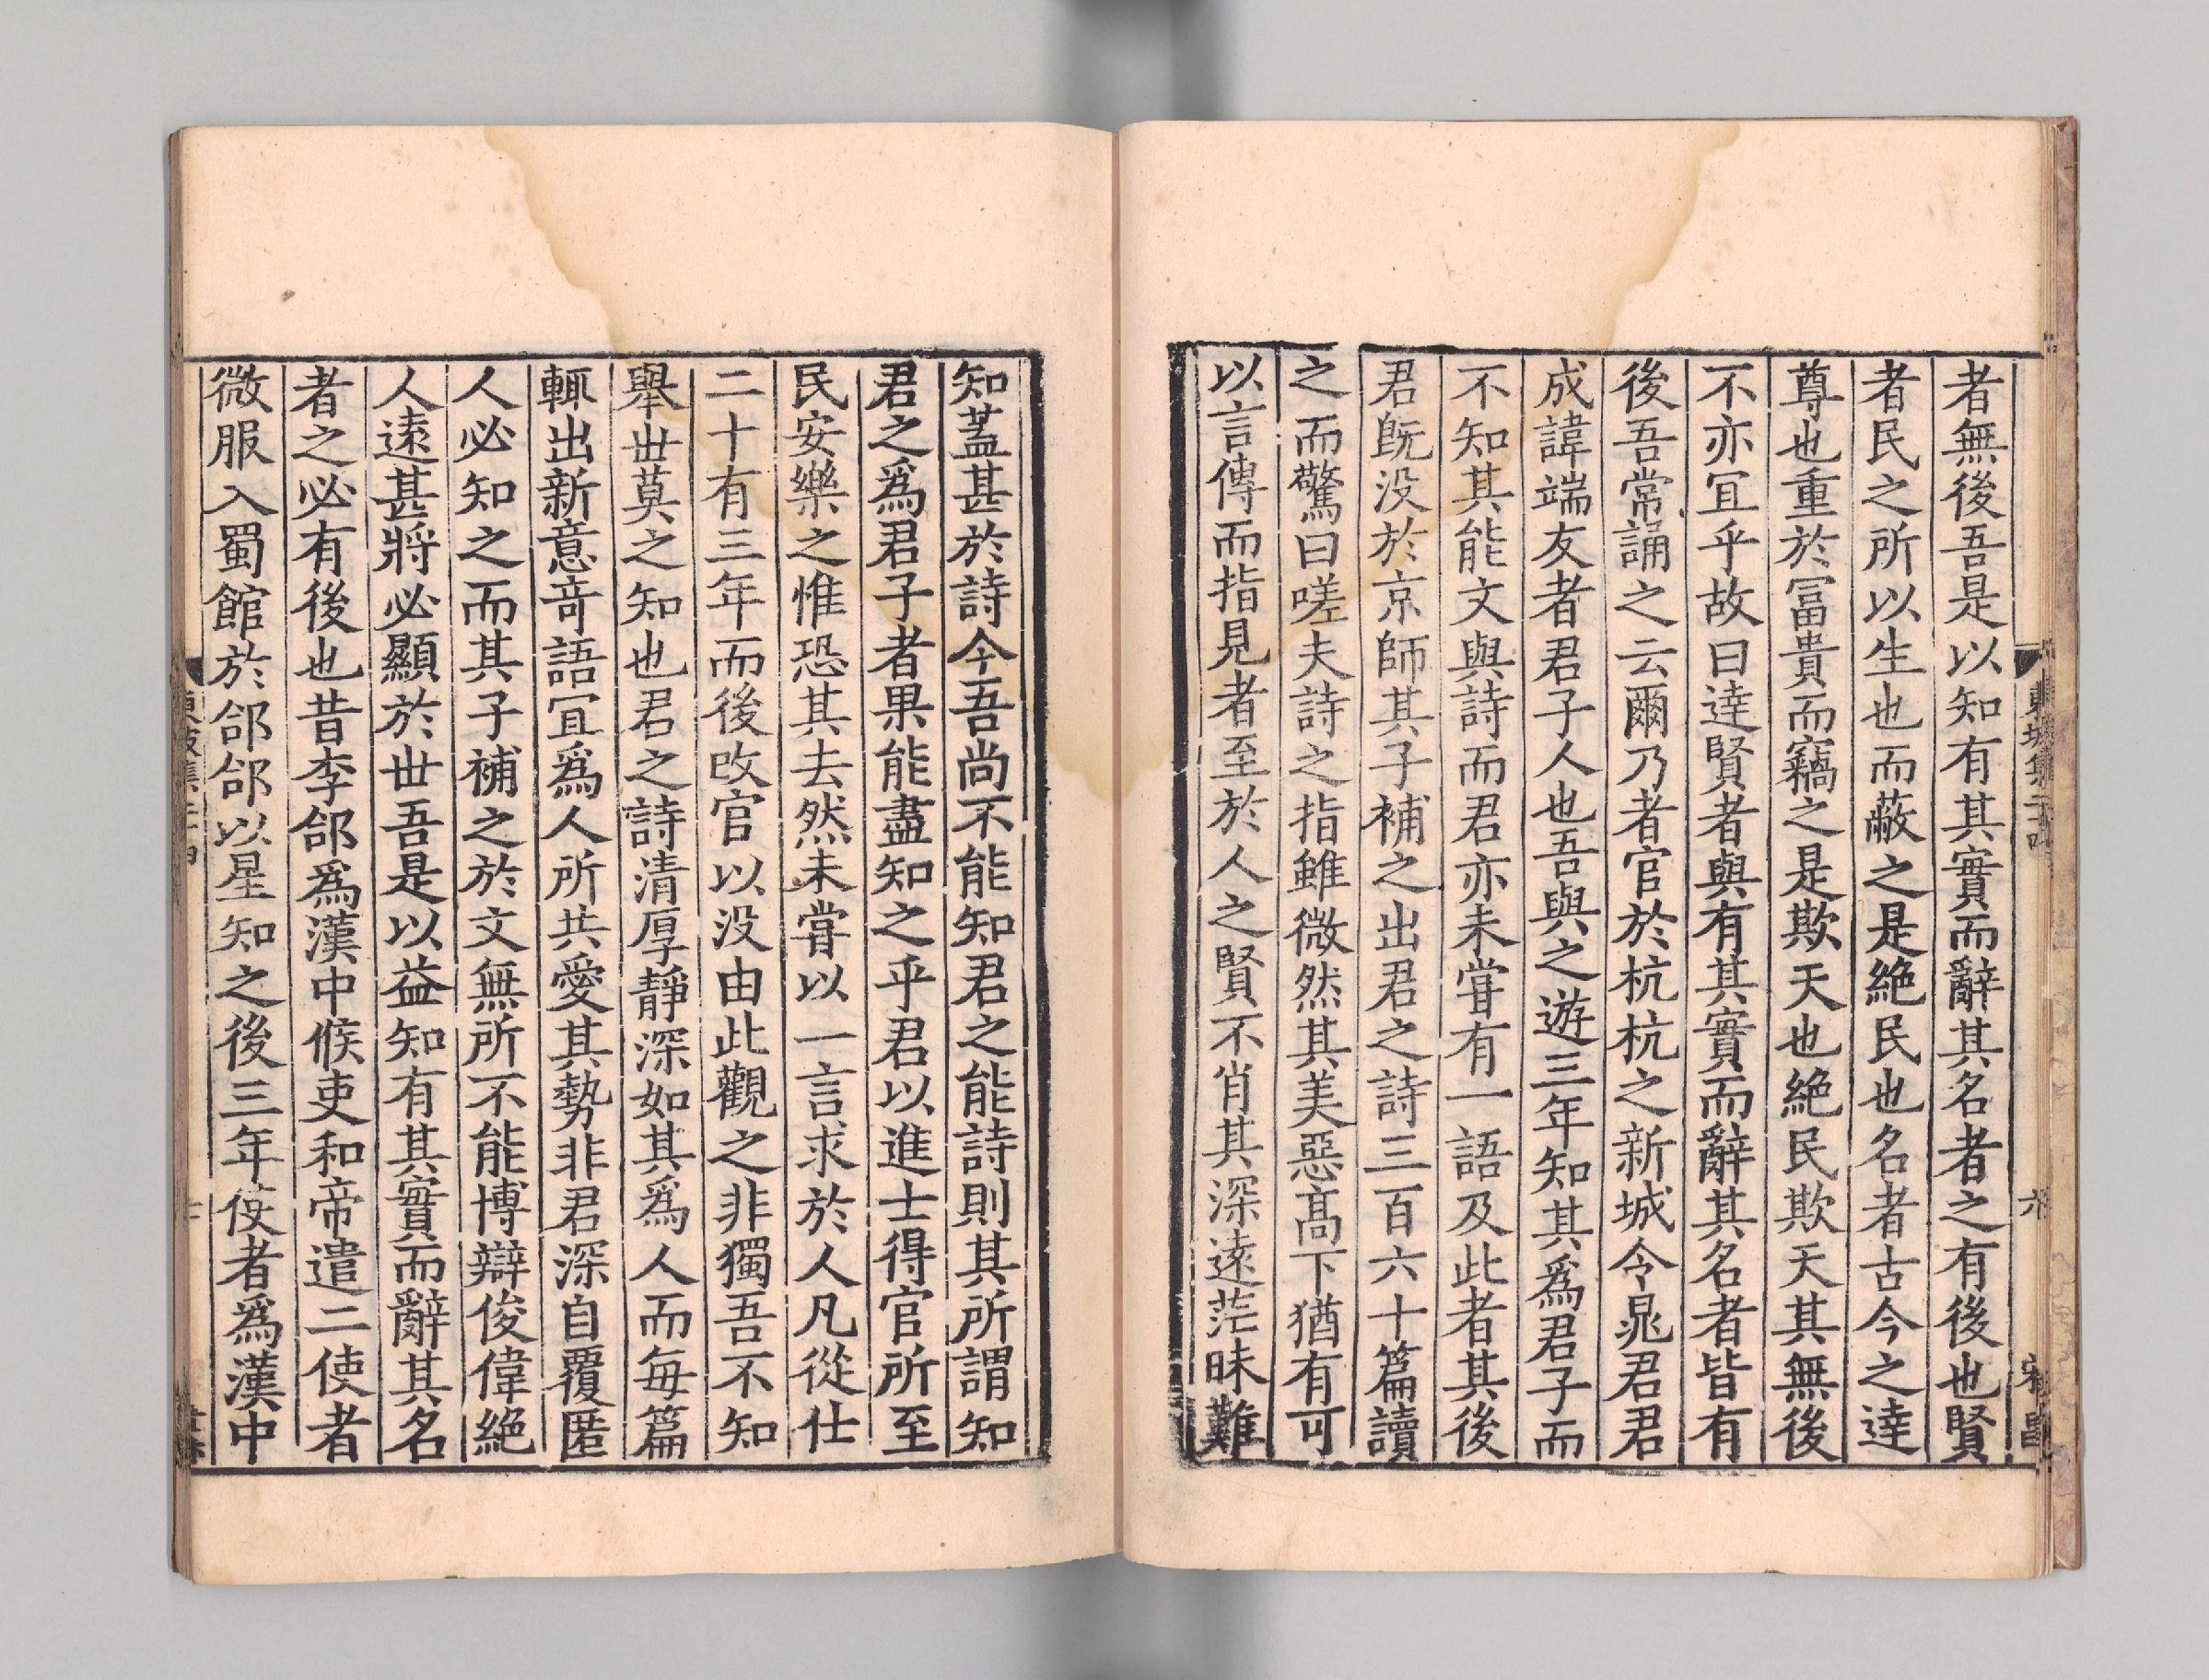 者無後吾是以知有其實而辭其名者之有後也賢
者民之所以生也而蔽之是絶民也名者古今之達
尊也重於冨貴而竊之是欺天也絶民欺天其無後
不亦冝乎故曰達賢者與有其實而辭其名者皆有
後吾常誦之云爾乃者官於杭杭之新城令晁君君
成諱端友者君子人也吾與之遊三年知其爲君子而
不知其能文與詩而君亦未甞有一語及此者其後
君旣没於京師其子補之出君之詩三百六十篇讀
之而驚曰嗟夫詩之指雖微然其美惡高下猶有可
以言傳而指見者至於人之賢不肖其深遠茫昧難
知葢甚於詩今吾尚不能知君之能詩則其所謂知
君之爲君子者果能盡知之乎君以進士得官所至
民安樂之惟恐其去然未甞以一言求於人凡從仕
二十有三年而後改官以没由此觀之非獨吾不知
舉丗莫之知也君之詩清厚靜深如其爲人而每篇
輒出新意竒語冝爲人所共愛其勢非君深自覆匿
人必知之而其子補之於文無所不能博辯俊偉絶
人遠甚將必顯於丗吾是以益知有其實而辭其名
者之必有後也昔李郃爲漢中候吏和帝遣二使者
微服入蜀館於郃郃以星知之後三年使者爲漢中